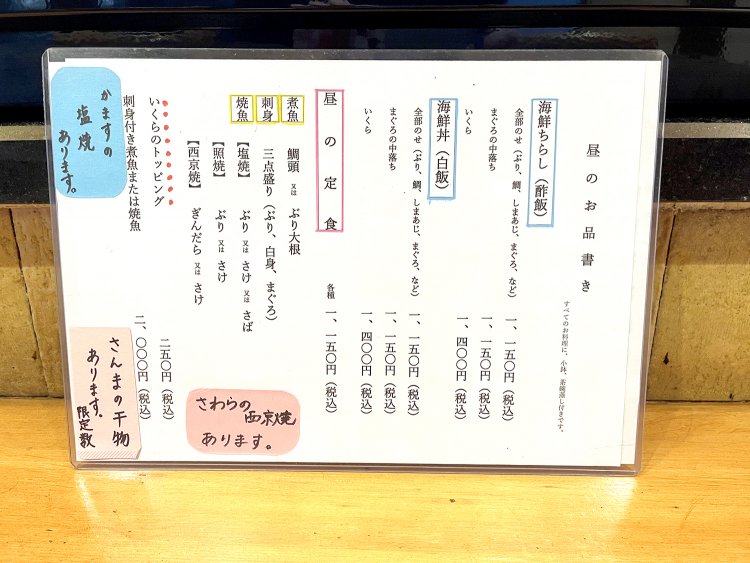 昼のお品書き
すべてのお料理に、小鉢、茶碗蒸し付きです。
海鮮ちらし（酢飯）
全部のせ（ぶり、鯛、しまあじ、まぐろ、など） 一、一五〇円（税込）
まぐろの中落ち 一、一五〇円（税込）
いくら 一、四〇〇円（税込）
海鮮丼（白飯）
全部のせ（ぶり、鯛、しまあじ、まぐろ、など） 一、一五〇円（税込）
まぐろの中落ち 一、一五〇円（税込）
いくら 一、四〇〇円（税込）
昼の定食 各種 一、一五〇円（税込）
煮魚 鯛頭 又は ぶり大根
刺身 三点盛り（ぶり、白身、まぐろ）
焼魚 【塩焼】 ぶり 又は さけ 又は さば
【照焼】 ぶり 又は さけ
【西京焼】 ぎんだら 又は さけ
いくらのトッピング 二五〇円（税込）
刺身付き煮魚または焼魚 二、〇〇〇円（税込）
かますの
塩焼
あります。
さわらの
西京焼
あります。
さんまの干物
あります。
限定数